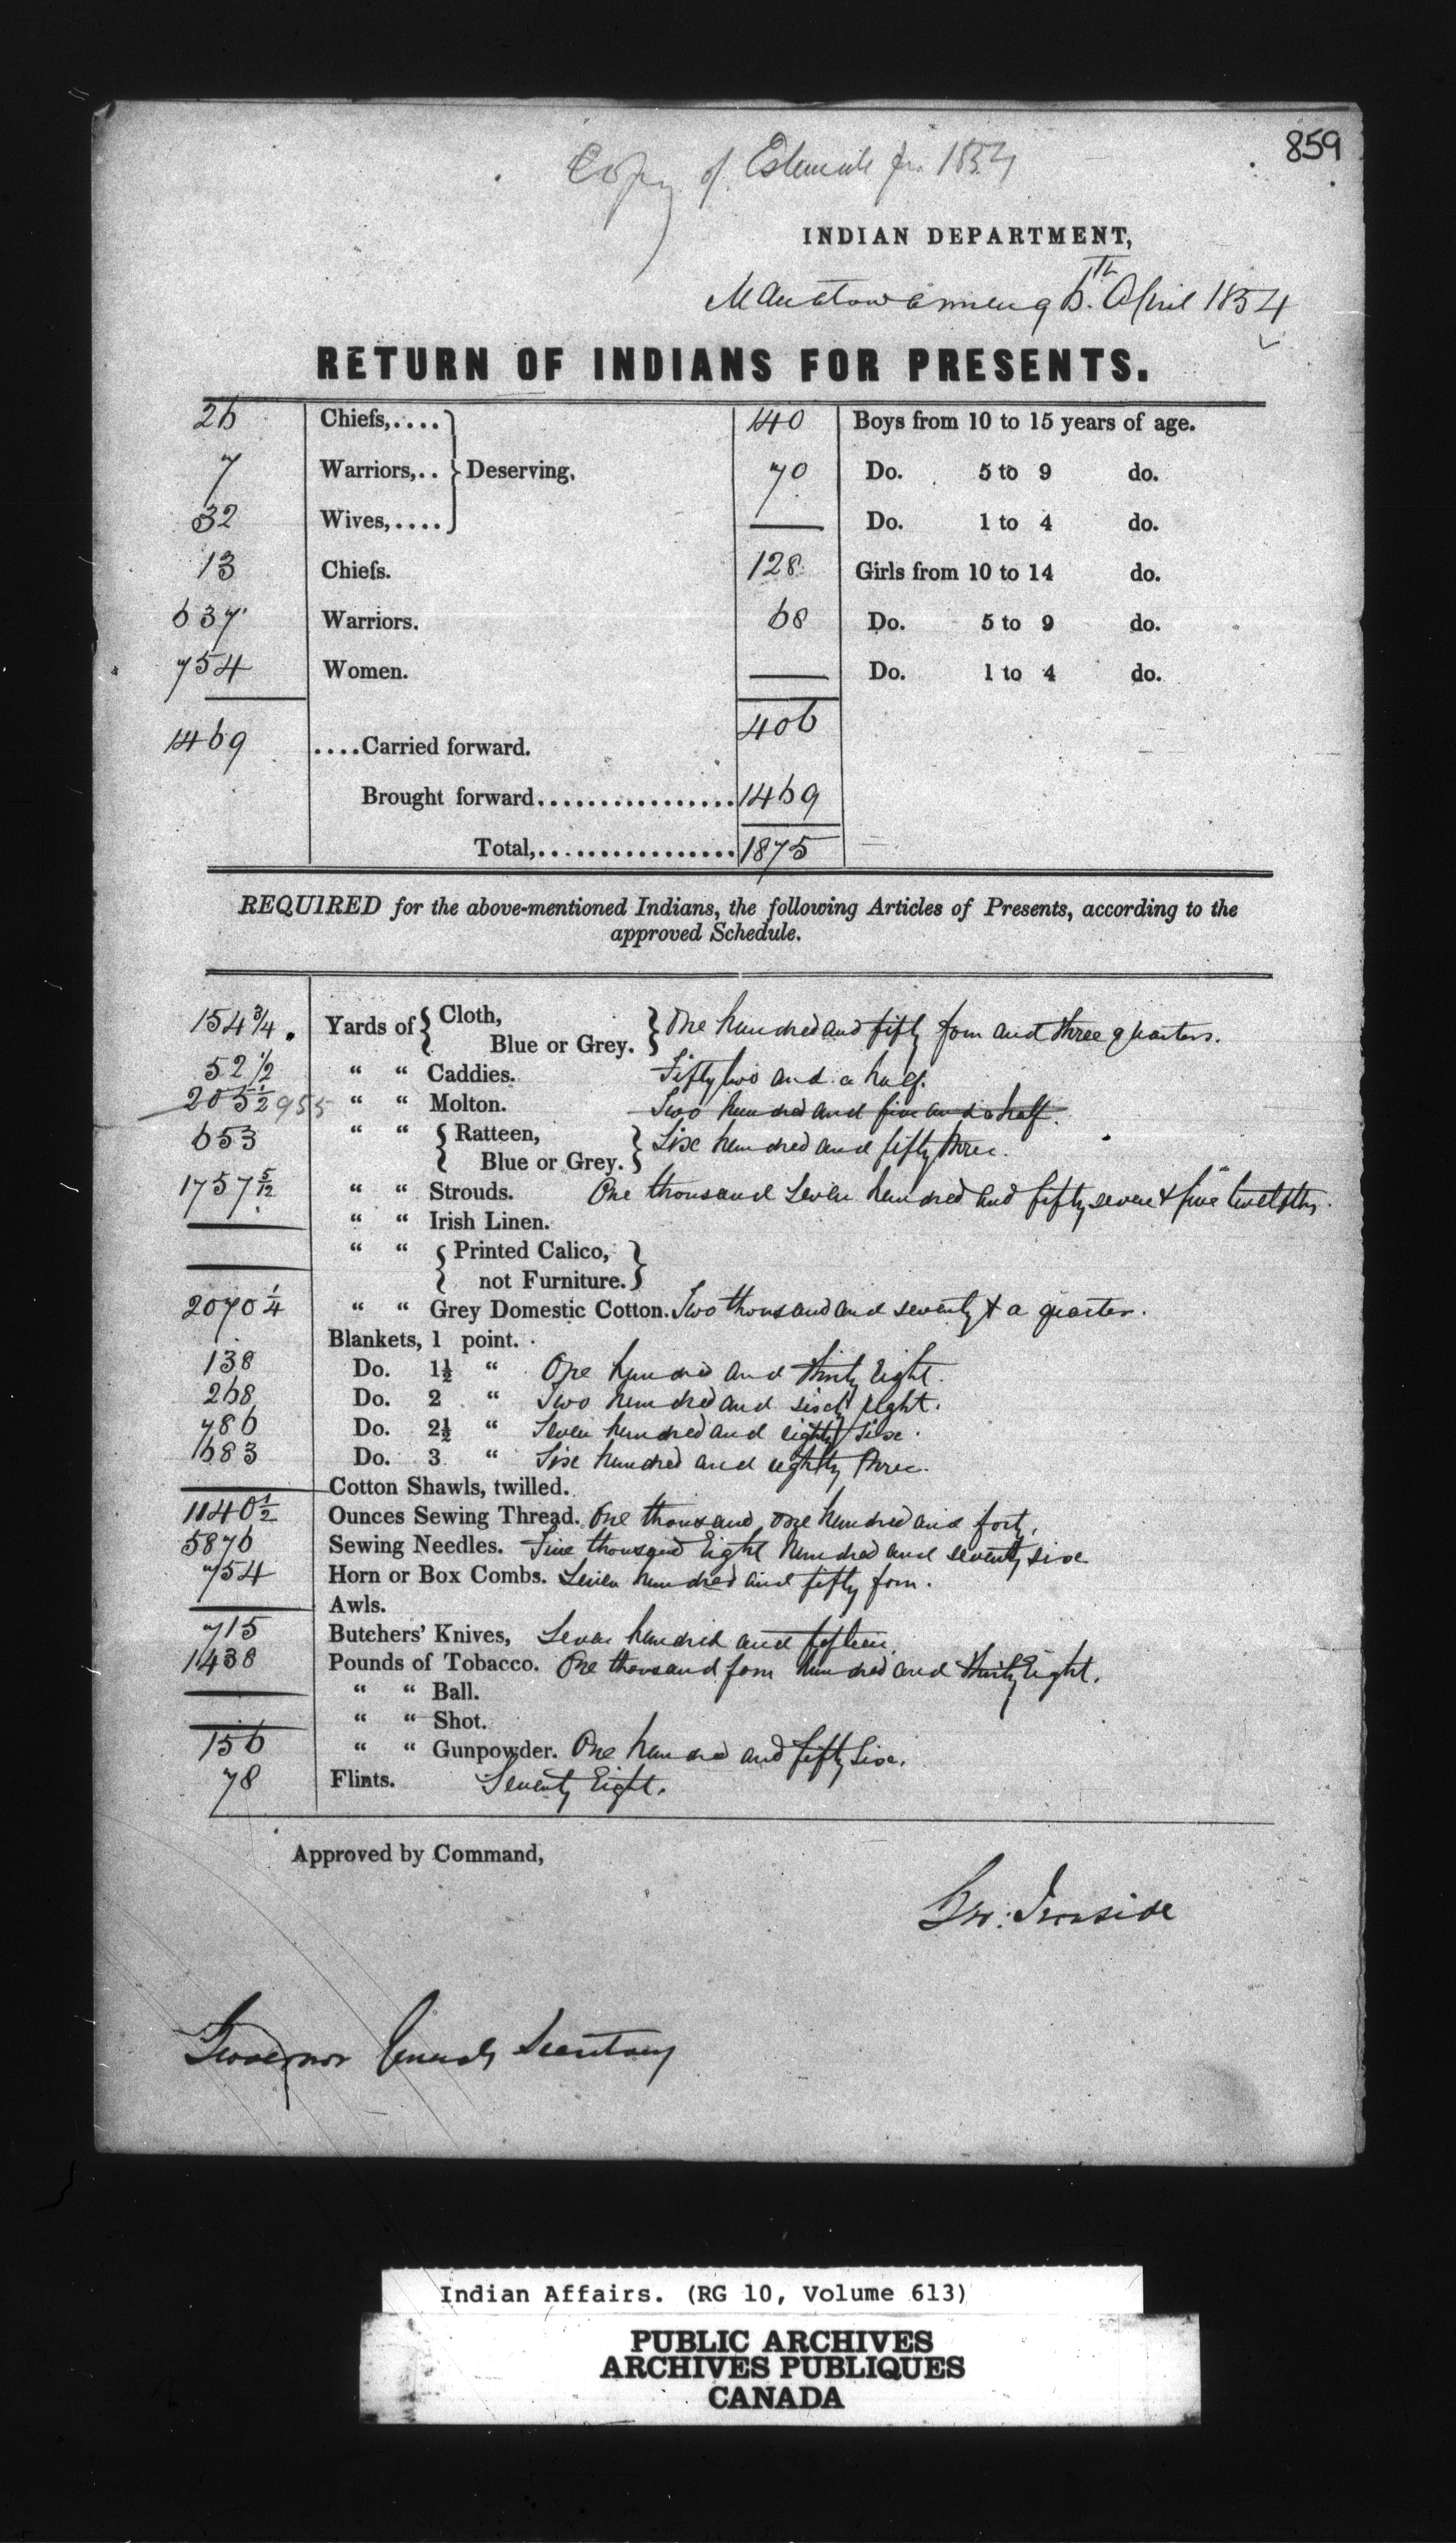 859
Copy of Estimate for 1854
INDIAN DEPARTMENT,
Manatowaning 6th. April 1854
RETURN OF INDIANS FOR PRESENTS.
26 Chiefs,.... 140 Boys from 10 to 15 years of age.
7 Warriors,.. Deserving. 70 Do. 5 to 9 do.
32 Wives,.... — Do. 1 to 4 do.
13 Chiefs. 128 Girls from 10 to 14 do.
637 Warriors. 68 Do. 5 to 9 do.
754 Women. — Do. 1 to 4 do.
1469 ....Carried forward. 406
Brought forward................ 1469
Total,................ 1875
REQUIRED for the above-mentioned Indians, the following Articles of Presents, according to the
approved Schedule.
154 3/4. Yards of { Cloth, Blue or Grey. } One hundred and fifty four and three quarters.
52 1/2 " " Caddies. Fifty two and a half.
205 1/2 955 " " Molton. Two hundred and five and a half.
653 " " { Ratteen, Blue or Grey. } Six hundred and fifty three.
1757 5/12 " " Strouds. One thousand seven hundred and fifty seven & five twelfths.
— " " Irish Linen.
— " " { Printed Calico, not Furniture. }
2070 1/4 " " Grey Domestic Cotton. Two thousand and seventy & a quarter.
Blankets, 1 point.
138 Do. 1½ " One hundred and thirty Eight.
268 Do. 2 " Two hundred and sixty eight.
786 Do. 2½ " Seven hundred and eighty six.
683 Do. 3 " Six hundred and eightty three.
— Cotton Shawls, twilled.
1140 1/2 Ounces Sewing Thread. One thousand one hundred and forty.
5876 Sewing Needles. Five thousand Eight hundred and seventy six
754 Horn or Box Combs. Seven hundred and fifty four.
— Awls.
715 Butchers' Knives, Seven hundred and fifteen.
1438 Pounds of Tobacco. One thousand four hundred and thirty Eight.
— " " Ball.
— " " Shot.
156 " " Gunpowder. One hundred and fifty six.
78 Flints. Seventy Eight.
Approved by Command,
Geo: Ironside
Governor Generals Secretary
Indian Affairs. (RG 10, Volume 613)
PUBLIC ARCHIVES
ARCHIVES PUBLIQUES
CANADA